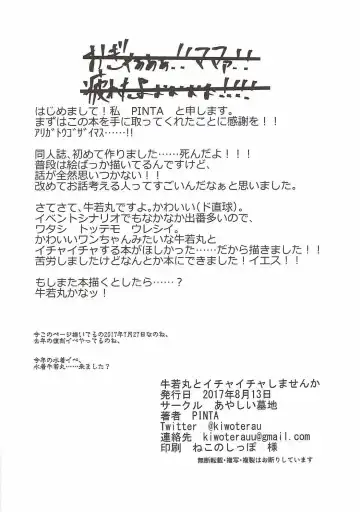 おぎゃぁぁぁ!!ママァ!!
疲れたよぉぉぉぉ!!!!
はじめまして!私 PINTA と申します。
まずはこの本を手に取ってくれたことに感謝を!!
ｱﾘｶﾞﾄｳｺﾞｻﾞｲﾏｽ……!!
同人誌、初めて作りました……死んだよ!!!
普段は絵ばっか描いてるんですけど、
話が全然思いつかない!!
改めてお話考える人ってすごいんだなぁと思いました。
さてさて、牛若丸ですよ。かわいい(ド直球)。
イベントシナリオでもなかなか出番多いので、
ワタシ トッテモ ウレシイ。
かわいいワンちゃんみたいな牛若丸と
イチャイチャする本がほしかった……だから描きました!
苦労しましたけどなんとか本にできました!イエス!!
もしまた本描くとしたら……?
牛若丸かなッ!
今このページ描いてるの2017年7月27日なのね、
去年の復刻イベやってるのね、
今年の水着イベ、
水着牛若丸……来ました?
牛若丸とイチャイチャしませんか
発行日 2017年8月13日
サークル あやしい墓地
著者 PINTA
Twitter @kiwoterau
連絡先 kiwoterauu@gmail.com
印刷 ねこのしっぽ 様
無断転載・複写・複製はお断りしています